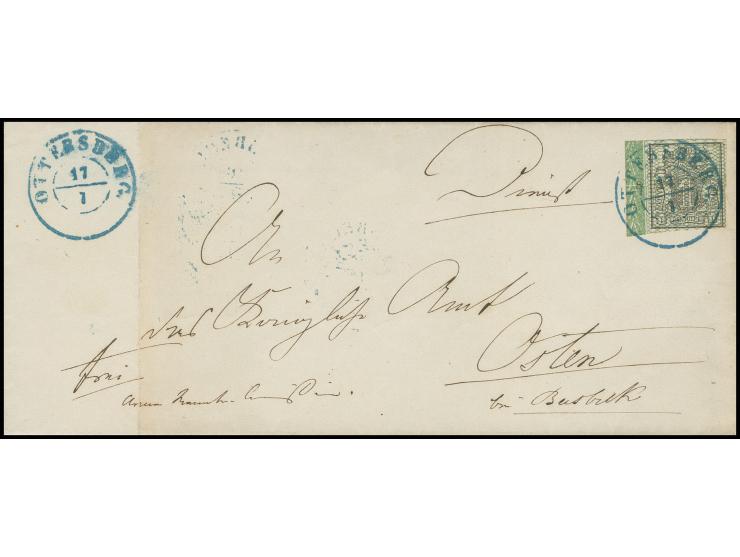 OTTERSBERG
17
7
OTTERSBERG
17
7
Dienst
An
das Königliche Amt
Osten
frei
bei Basbeck